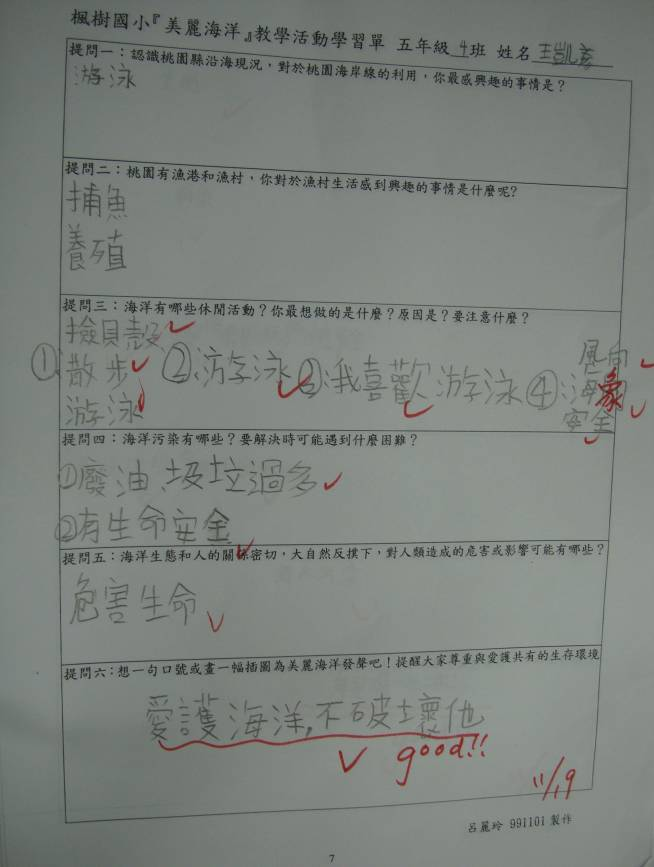 楓樹國小『美麗海洋』教學活動學習單 五年級 4班 姓名 王凱彥
提問一：認識桃園縣沿海現況，對於桃園海岸線的利用，你最感興趣的事情是？
游泳
提問二：桃園有漁港和漁村，你對於漁村生活感到興趣的事情是什麼呢?
捕魚
養殖
提問三：海洋有哪些休閒活動？你最想做的是什麼？原因是？要注意什麼？
撿貝殼
①散步 ②游泳 ③我喜歡游泳 ④風向
海象
游泳 安全
提問四：海洋污染有哪些？要解決時可能遇到什麼困難？
①廢油、圾垃過多
②有生命安全
提問五：海洋生態和人的關係密切，大自然反撲下，對人類造成的危害或影響可能有哪些？
危害生命
提問六：想一句口號或畫一幅插圖為美麗海洋發聲吧！提醒大家尊重與愛護共有的生存環境
愛護海洋,不破壞他
good!!
11/19
呂麗玲 991101 製作
7